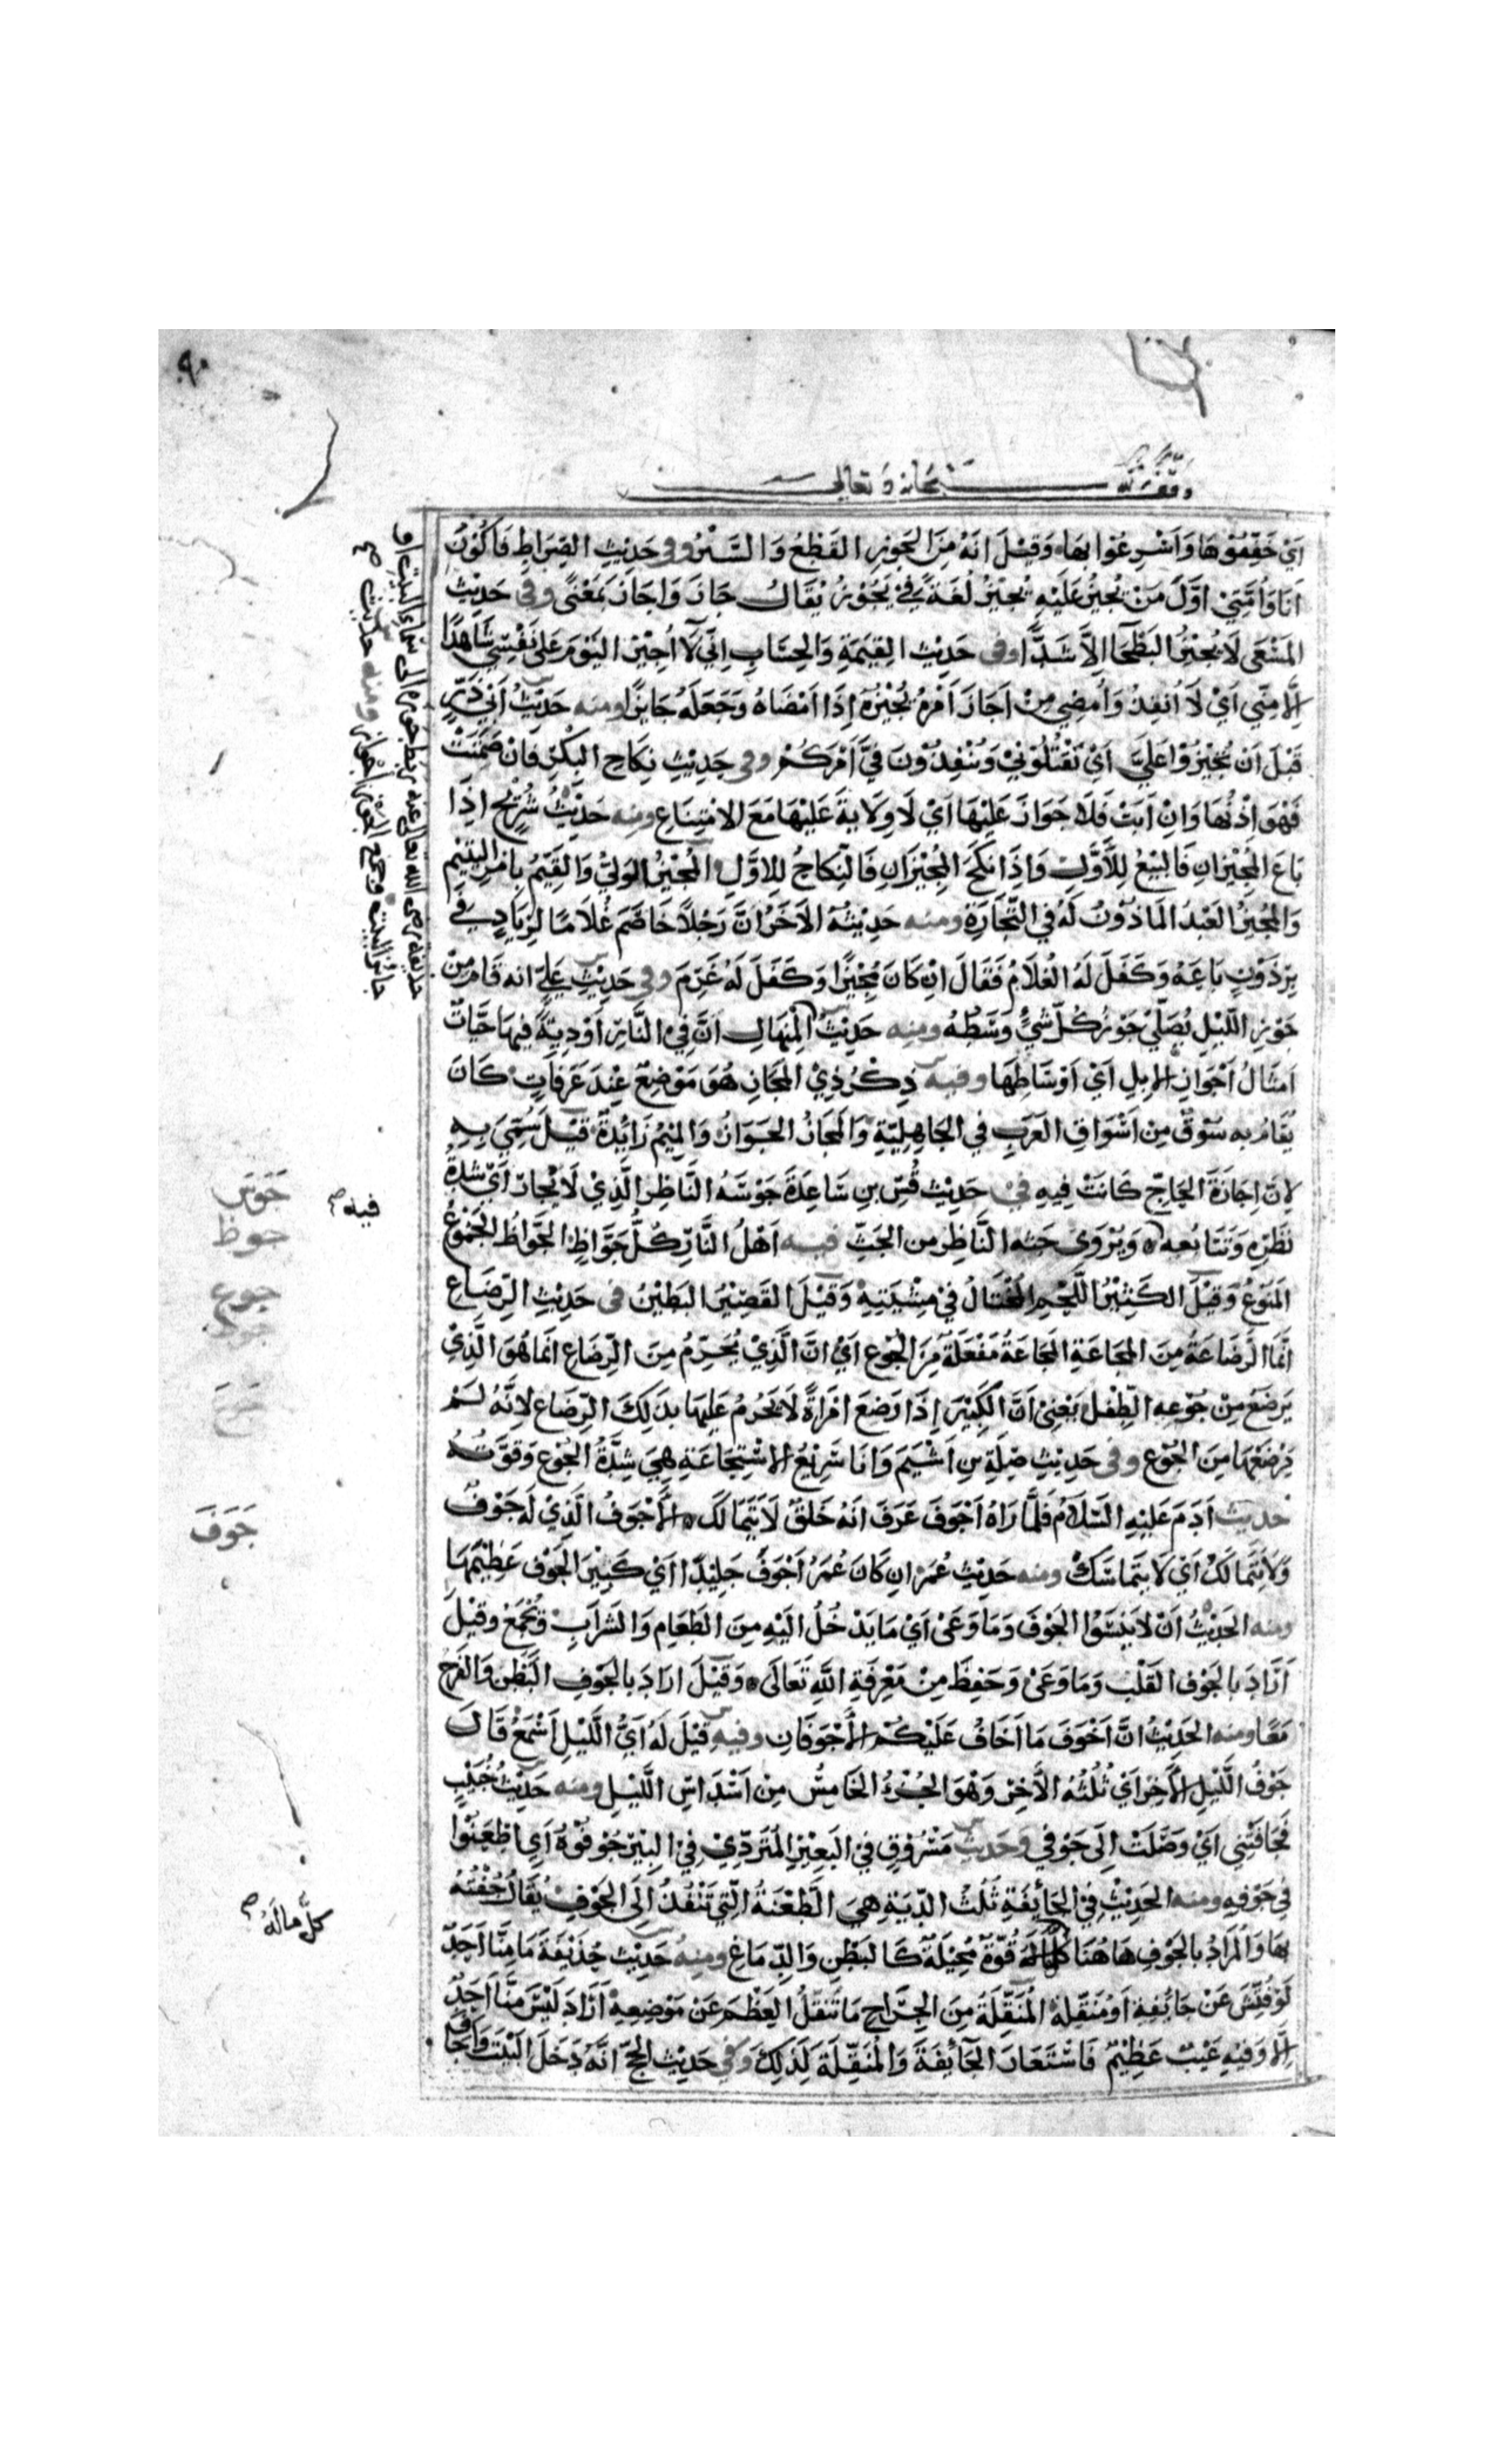 ٩٠
وقف لله سبحانه وتعالى
اَيْ خَفِّفُوْهَا وَاَسْرِعُوْا بِهَا وَقِيْلَ اِنَّهُ مِنَ الجَوْزِ القَطْعِ وَالسَّيْرِ وفى حَدِيْثِ الصِّرَاطِ فَاَكُوْنُ
اَنَا وَاُمَّتِيْ اَوَّلَ مَنْ يُجِيْزُ عَلَيْهِ يُجِيْزُ لُغَةٌ فِيْ يَجُوْزُ يُقَالُ جَازَ وَاَجَازَ بِمَعْنًى وفى حَدِيْثِ
المَسْعَى لَا يُجِيْزُ البَطْحَا اِلَّا شَدًّا وفى حَدِيْثِ القِيٰمَةِ وَالحِسَابِ اِنِّيْ لَا اُجِيْزُ اليَوْمَ عَلَى نَفْسِيْ شَاهِدًا
اِلَّا مِنِّي اَيْ لَا اُنْفِذُ وَاُمْضِي مِنْ اَجَازَ اَمْرَهُ يُجِيْزُهُ اِذَا اَمْضَاهُ وَجَعَلَهُ جَايِزًا ومنه حَدِيْثُ اَبِيْ ذَرٍّ
قَبْلَ اَنْ تُجِيْزُوْا عَلَيَّ اَيْ تَقْتُلُوْنِيْ وَتُنْفِذُوْنَ فِيَّ اَمْرَكُمْ وفى حَدِيْثِ نِكَاحِ البِكْرِ فَاِنْ صَمَتَتْ
فَهْوَ اِذْنُهَا وَاِنْ اَبَتْ فَلَا جَوَازَ عَلَيْهَا اَيْ لَا وِلَايَةَ عَلَيْهَا مَعَ الامْتِنَاعِ ومنه حَدِيْثُ شُرَيْحٍ اِذَا
بَاعَ المُجِيْزَانِ فَالبَيْعُ لِلْاَوَّلِ وَاِذَا نَكَحَ المُجِيْزَانِ فَالنِّكَاحُ لِلاَوَّلِ المُجِيْزُ الوَلِيُّ وَالقَيِّمُ بِاَمْرِ اليَتِيْمِ
وَالمُجِيْزُ العَبْدُ المَاذُوْنُ لَهُ فِي التِّجَارَةِ ومنه حَدِيْثُهُ الآخَرُ اِنَّ رَجُلًا خَاصَمَ غُلَامًا لِزِيَادٍ فِي
بِرْذَوْنٍ بَاعَهُ وَكَفَلَ لَهُ الغُلَامُ فَقَالَ اِنْ كَانَ مُجِيْزًا وَكَفَلَ لَهُ غَرِمَ وفى حَدِيْثِ عَلِيٍّ انه قَامَ مِنْ
جَوْزِ اللَّيْلِ يُصَلِّيْ جَوْزُ كُلِّ شَيْءٍ وَسَطُهُ ومنه حَدِيْثُ المِنْهَالِ اَنَّ فِيْ النَّارِ اَوْدِيَةً فِيْهَا حَيَّاتٌ
اَمْثَالُ اَجْوَازِ الاِبِلِ اَيْ اَوْسَاطِهَا وفيه ذِكْرُ ذِيْ المَجَازِ هُوَ مَوْضِعٌ عِنْدَ عَرَفَاتٍ كَانَ
يُقَامُ بِهِ سُوْقٌ مِنْ اَسْوَاقِ العَرَبِ فِي الجَاهِلِيَّةِ وَالمَجَازُ الجَوَازُ وَالمِيْمُ زَايِدَةٌ قِيْلَ سُمِّيَ بِهِ
لِاَنَّ اِجَازَةَ الحَاجِّ كَانَتْ فِيْهِ فى حَدِيْثِ قُسِّ بنِ سَاعِدَةَ جَوْسَهُ النَّاظِرَ الَّذِيْ لَا يُحَارُ اَيْ شِدَّةُ
نَظَرِهِ وَتَتَابُعِهِ وَيُرْوَى حَثَّهُ النَّاظِرُ مِنَ الحَثِّ فيه اَهْلُ النَّارِ كُلُّ جَوَّاظٍ الجَوَّاظُ الجَمُوْعُ
المَنُوْعُ وَقِيْلَ الكَثِيْرُ اللَّحْمِ المُخْتَالُ فِيْ مِشْيَتِهِ وَقِيْلَ القَصِيْرُ البَطِيْنُ فى حَدِيْثِ الرَّضَاعِ
اِنَّمَا الرَّضَاعَةُ مِنَ المَجَاعَةِ المَجَاعَةُ مَفْعَلَةٌ مِنَ الجُوْعِ اَيْ اِنَّ الَّذِيْ يُحَرِّمُ مِنَ الرِّضَاعِ اِنَّمَا هُوَ الَّذِيْ
يَرْضَعُ مِنْ جُوْعِهِ الطِّفْلُ يَعْنِىْ اَنَّ الكَبِيْرَ اِذَا رَضَعَ امْرَاَةً لَا يَحْرُمُ عَلَيْهَا بِذٰلِكَ الرِّضَاعِ لِاَنَّهُ لَمْ
يَرْضَعْهَا مِنَ الجُوْعِ وفى حَدِيْثِ صِلَةَ بنِ اَشْيَمَ وَاَنَا سَرِيْعُ الاسْتِجَاعَةِ هِيَ شِدَّةُ الجُوْعِ وَقُوَّتُهُ
حَدِيث اَدَمَ عَلَيْهِ السَّلَامُ فَلَمَّا رَاَهُ اَجْوَفَ عَرَفَ اَنَّهُ خَلْقٌ لَا يَتَمَالَكُ الاَجْوَفُ الَّذِيْ لَهُ جَوْفٌ
وَلَا يَتَمَالَكُ اَيْ لَا يَتَمَاسَكُ ومنه حَدِيْثُ عِمْرَانَ كَانَ عُمَرُ اَجْوَفَ جَلِيْدًا اَيْ كَبِيْرَ الجَوْفِ عَظِيْمَهَا
ومنه الحَدِيْثُ اَنْ لَا تَنْسَوُا الجَوْفَ وَمَا وَعَى اَيْ مَا يَدْخُلُ اِلَيْهِ مِنَ الطَّعَامِ وَالشَّرَابِ وَيُجْمَعُ وَقِيْلَ
اَرَادَ بِالجَوْفِ القَلْبَ وَمَا وَعَىٰ وَحَفِظَ مِنْ مَعْرِفَةِ اللّٰهِ تَعَالَى وَقِيْلَ اَرَادَ بِالجَوْفِ البَطْنَ وَالفَرْجَ
مَعًا ومنه الحَدِيْثُ اِنَّ اَخْوَفَ مَا اَخَافُ عَلَيْكُمُ الاَجْوَفَانِ وفيه قِيْلَ لَهُ اَيُّ اللَّيْلِ اَسْمَعُ قَالَ
جَوْفُ اللَّيْلِ الآخِرُ اَيْ ثُلُثُهُ الآخِرُ وَهْوَ الجُزْءُ الخَامِسُ مِنْ اَسْدَاسِ اللَّيْلِ ومنه حَدِيْثُ خُبَيْبٍ
فَجَافَتْنِي اَيْ وَصَلَتْ اِلَى جَوْفِي وَحَدِيثُ مَسْرُوْقٍ فِي البَعِيْرِ المُتَرَدِّيْ فِيْ البِئْرِ جُوْفُوْهُ اَيْ اطْعَنُوْا
فِي جَوْفِهِ ومنه الحَدِيْثُ فِي الجَائِفَةِ ثُلُثُ الدِّيَةِ هِيَ الطَّعْنَةُ الَّتِي تَنْفُذُ اِلَى الجَوْفِ يُقَالُ جُفْتُهُ
بِهَا وَالمُرَادُ بِالجَوْفِ هَاهُنَا كُلُّ مَالَهُ قُوَّةٌ مُحِيْلَةٌ كَالبَطْنِ وَالدِّمَاغِ ومنه حَدِيْثُ حُذَيْفَةَ مَا مِنَّا اَحَدٌ
لَوْ فُتِّشَ عَنْ جَائِفَةٍ اَوْ مُنَقِّلَةٍ المُنَقِّلَةُ مِنَ الجِرَاحِ مَا تَنْقُلُ العَظْمَ عَنْ مَوْضِعِهِ اَرَادَ لَيْسَ مِنَّا اَحَدٌ
اِلَّا وَفِيْهِ عَيْبٌ عَظِيْمٌ فَاسْتَعَارَ الجَائِفَةَ وَالمُنَقِّلَةَ لِذٰلِكَ وَفِي حَدِيْثِ الحَجِّ اَنَّهُ دَخَلَ البَيْتَ وَاَجَافَ
جَوَسَ
فيه
جوظ
جوع
جَوَفَ
كلُّ مالَهُ